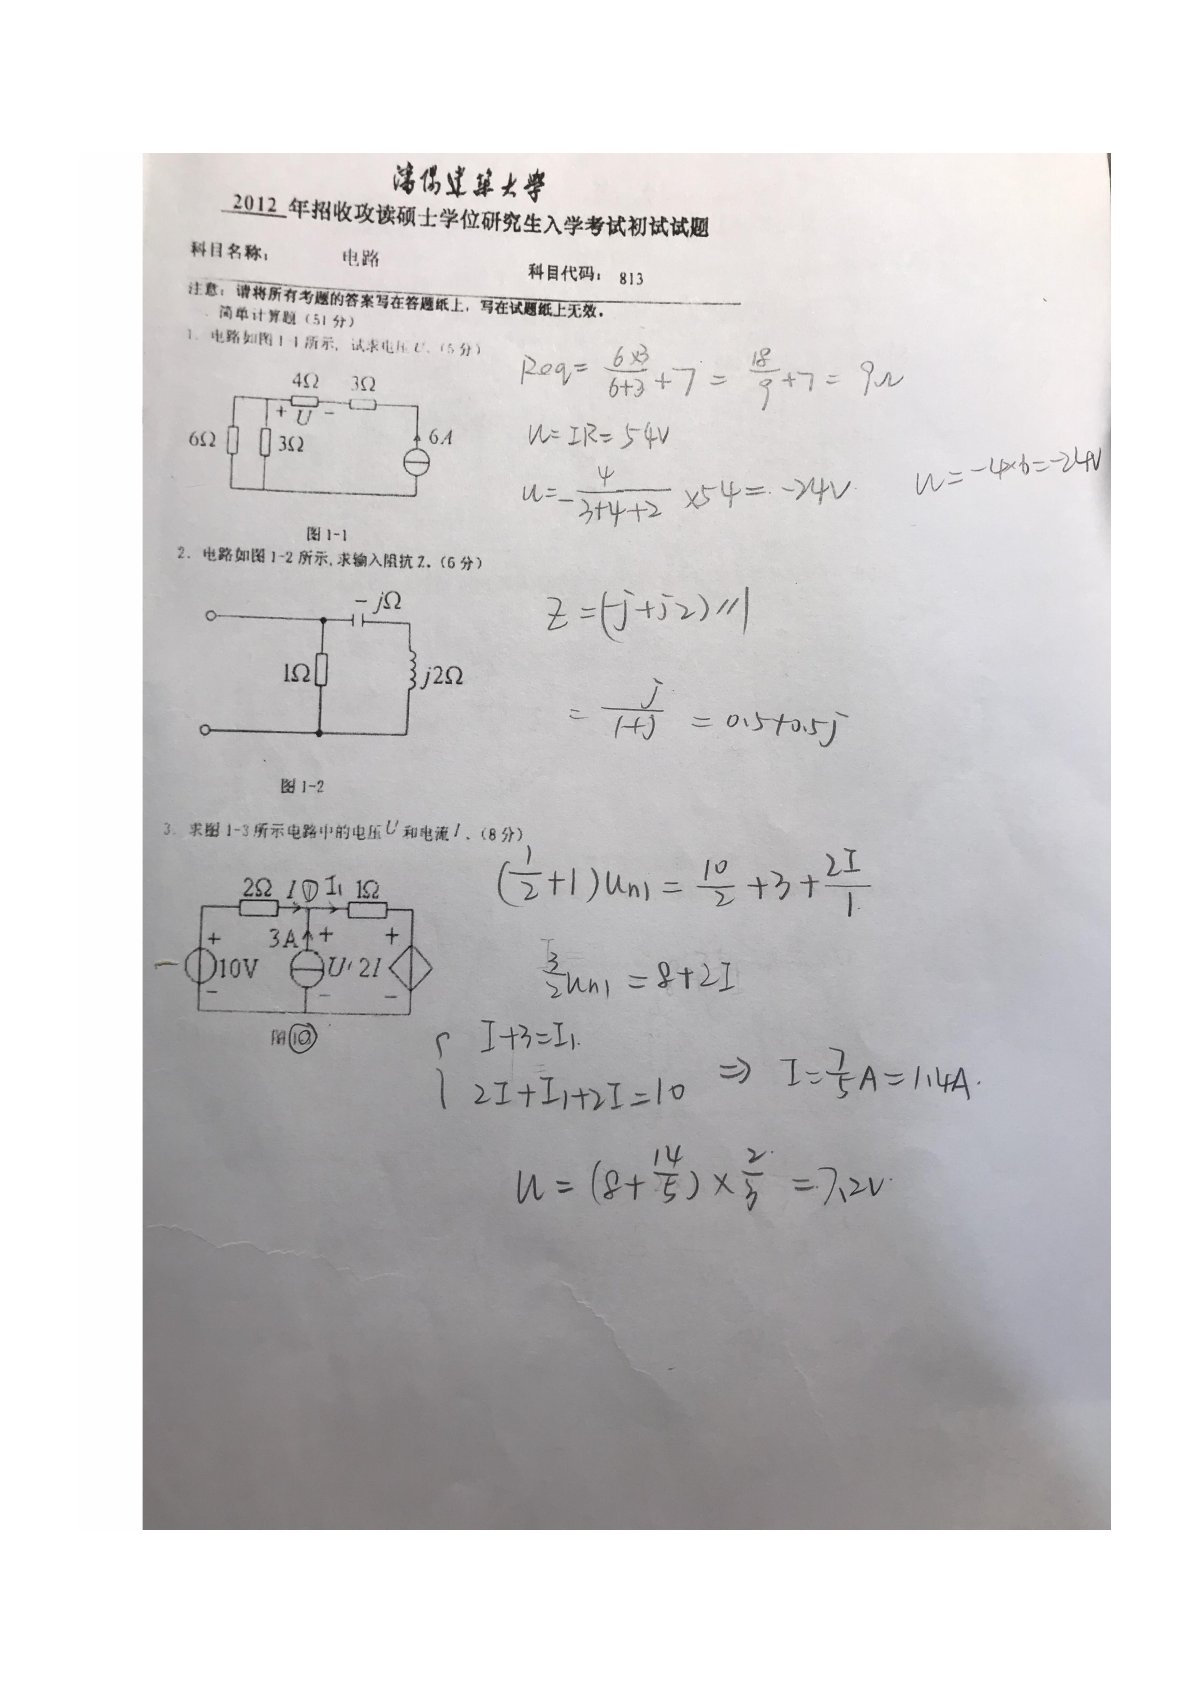 沈阳建筑大学
2012 年招收攻读硕士学位研究生入学考试初试试题
科目名称： 电路 科目代码： 813
注意：请将所有考题的答案写在答题纸上，写在试题纸上无效。
简单计算题（51分）
1. 电路如图1-1所示, 试求电压U.（5分）
4Ω 3Ω
+ U −
6Ω 3Ω 6A
图1-1
Req = 6×3/6+3 + 7 = 18/9 + 7 = 9Ω
u = IR = 54V
u = -4/3+4+2 ×54 = -24V. u = -4×6 = -24V
2. 电路如图1-2所示,求输入阻抗Z.（6分）
− jΩ
1Ω j2Ω
图1-2
Z = (-j+j2)//1
= j/1+j = 0.5+0.5j
3. 求图1-3所示电路中的电压U和电流I.（8分）
2Ω I ① I₁ 1Ω
+ 3A + +
10V U 2I
− − −
图10
(1/2+1)un1 = 10/2 + 3 + 2I/1
3/2 un1 = 8+2I
{ I+3=I₁
2I+I₁+2I=10 ⇒ I=7/5A=1.4A.
u = (8+14/5) × 2/3 = 7.2V